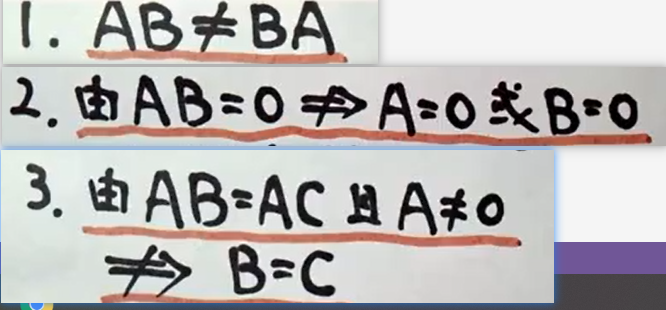 1. AB≠BA
2. 由AB=0 ⇏ A=0 或 B=0
3. 由AB=AC 且 A≠0
⇏ B=C